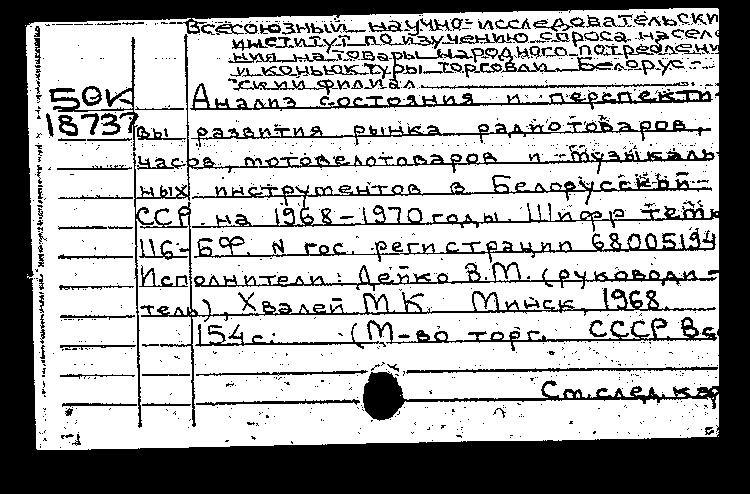 Всесоюзный научно-исследовательски
институт по изучению спроса насел
ния на товары народного потреблени
и конъюктуры торговли. Белорус-
ский филиал.
50К
18737
Анализ состояния и перспекти-
вы развития рынка радиотоваров,
часов, мотовелотоваров и музыкаль
ных инструментов в Белорусской
ССР на 1968-1970 годы. Шифр темы
116-БФ. N гос. регистрации 68005194
Исполнители: Дейко В.М. (руководи-
тель), Хвалей М.К. Минск, 1968.
154с. (М-во торг. СССР. Все
См. след. кар